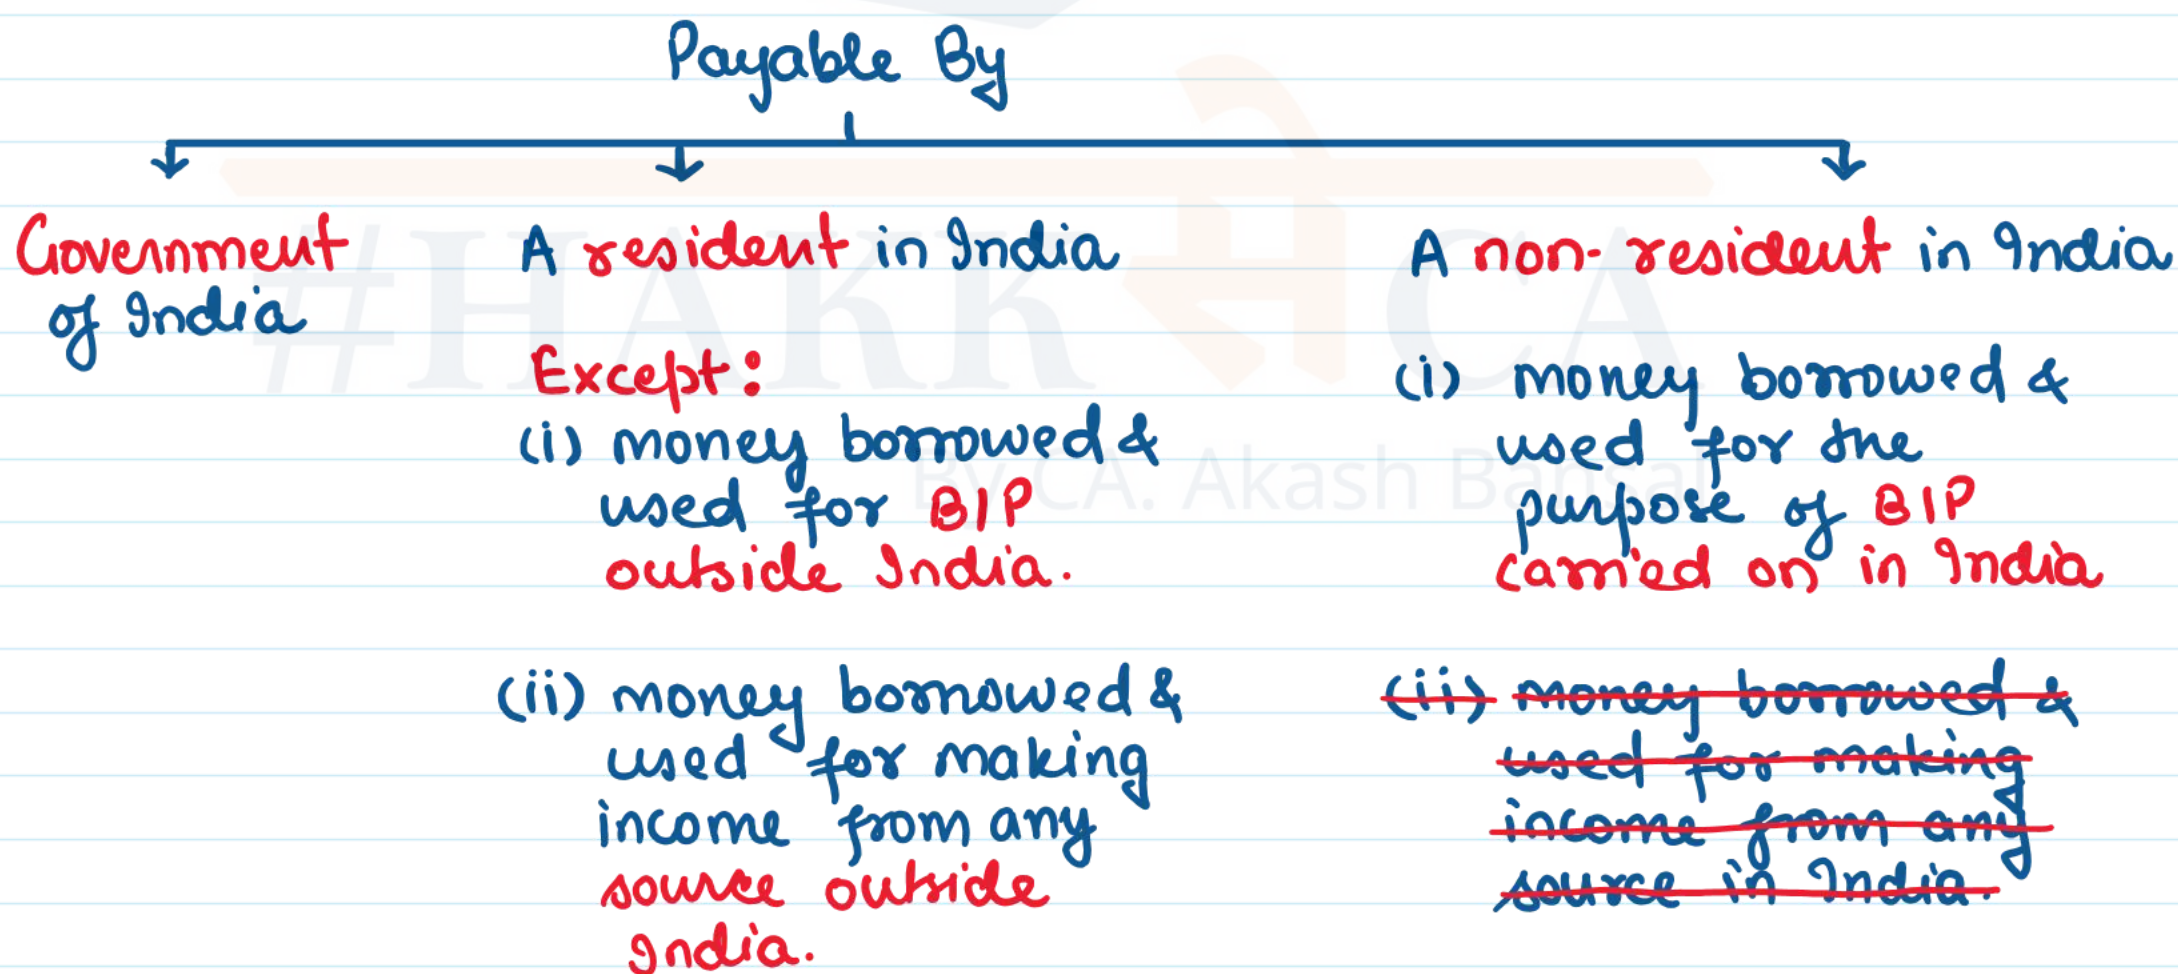 Payable By
Government
of India
A resident in India
Except:
(i) money borrowed &
used for BIP
outside India.
(ii) money borrowed &
used for making
income from any
source outside
India.
A non-resident in India
(i) money borrowed &
used for the
purpose of BIP
carried on in India
(ii) money borrowed &
used for making
income from any
source in India.
#HAKK से CA
By CA. Akash Bansal